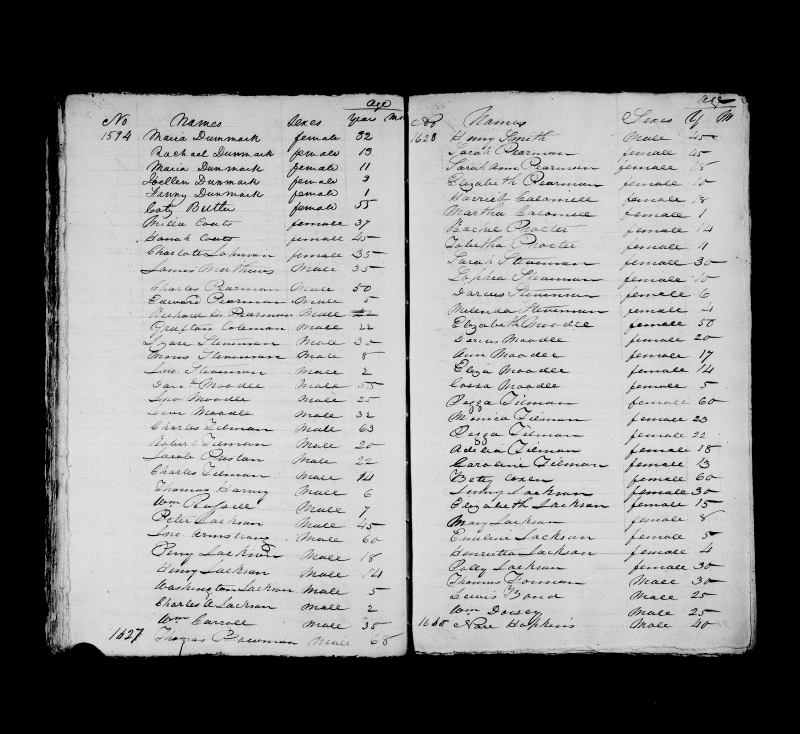 age
No Names Sexes Years Mo
1594 Maria Dunmark female 32
Rachael Dunmark female 13
Maria Dunmark female 11
Joellen Dunmark female 9
Fanny Dunmark female 1
Caty Butler female 55
Milia Coats female 37
Hanah Coats female 45
Charlotte Johnson female 35
James Matthews Male 35
Charles Pearman Male 50
Edward Pearman Male 5
Richard H. Pearman Male
Grafton Coleman Male 22
Isaac Stevenson Male 30
Thomas Stevenson Male 8
Jno. Stevenson Male 2
Moodee Male 55
Jno Moodee Male 25
Moodee Male 32
Charles Tilman Male 63
Robert Tilman Male 20
Jacob Ruston Male 22
Charles Tilman Male 14
Thomas Harvy Male 6
Wm Russell Male 7
Peter Jackson Male 45
Jno Armstrong Male 60
Perry Jackson Male 18
Henry Jackson Male 14
Washington Jackson Male 5
Charles A Jackson Male 2
Wm Carroll Male 35
1627 Thomas Bowman Male 65
age
No Names Sexes Y M
1628 Henry Smith Male 45
Sarah Pearman female 45
Sarah Ann Pearman female 15
Elizabeth Pearman female 10
Harriet Calomell female 18
Martha Calomell female 1
Rachel Procter female 14
Tabitha Procter female 11
Sarah Stevenson female 30
Sophia Stevenson female 10
Darcus Stevenson female 6
Malenda Stevenson female 4
Elizabeth Moodee female 50
Darcus Moodee female 20
Ann Moodee female 17
Eliza Moodee female 14
Cossa Moodee female 5
Pegga Tilman female 60
Monica Tilman female 23
Pegga Tilman female 22
Adelia Tilman female 18
Caroline Tilman female 13
Betty Coxen female 60
Jenny Jackson female 30
Elizabeth Jackson female 15
Mary Jackson female 8
Emiline Jackson female 5
Henrietta Jackson female 4
Polly Jackson female 30
Thomas Male 30
Lewis Bond Male 25
Wm Dorsey Male 25
Hopkins Male 40